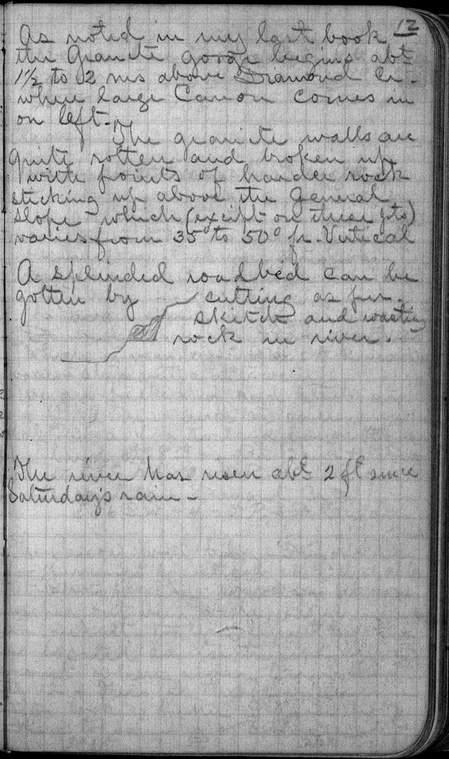 12
As noted in my last book
the Granite gorge begins abt
1½ to 2 ms above Diamond Cr.
where large Canon comes in
on left. –
The granite walls are
quite rotten and broken up
with points of harder rock
sticking up above the general
slope – which (except on these pts)
varies from 35° to 50° fr. Vertical
A splendid roadbed can be
gotten by cutting as per
sketch and wasting
rock in river.
The river has risen abt 2 ft since
Saturday's rain –